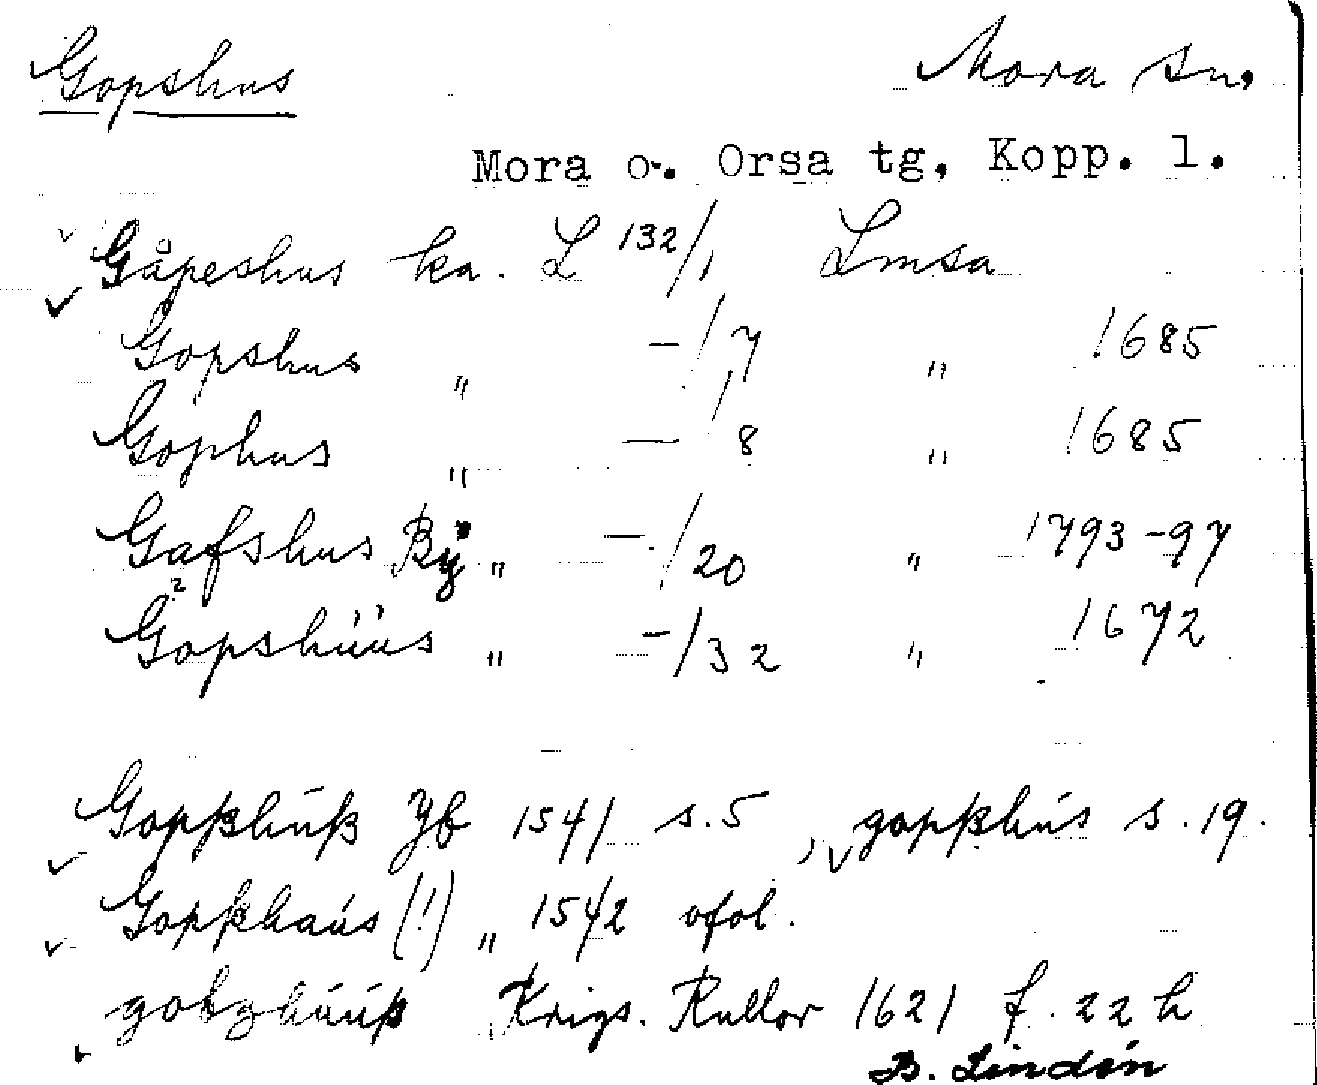 Gopshus Mora sn.
Mora o. Orsa tg. Kopp. l.
Gåpeshus ka. L 132/1 Lmsa
Gopshus „ -/7 „ 1685
Gophus „ -/8 „ 1685
Gafshus By „ -/20 „ 1793-97
Gopshüüs „ -/32 „ 1672
Gopßhuß Jb 1541 s. 5, gopßhus s. 19.
Gopßhaus (!) „ 1542 ofol.
gobzhuuß Krigs. Rullor 1621 f. 22 h
B. Lindén